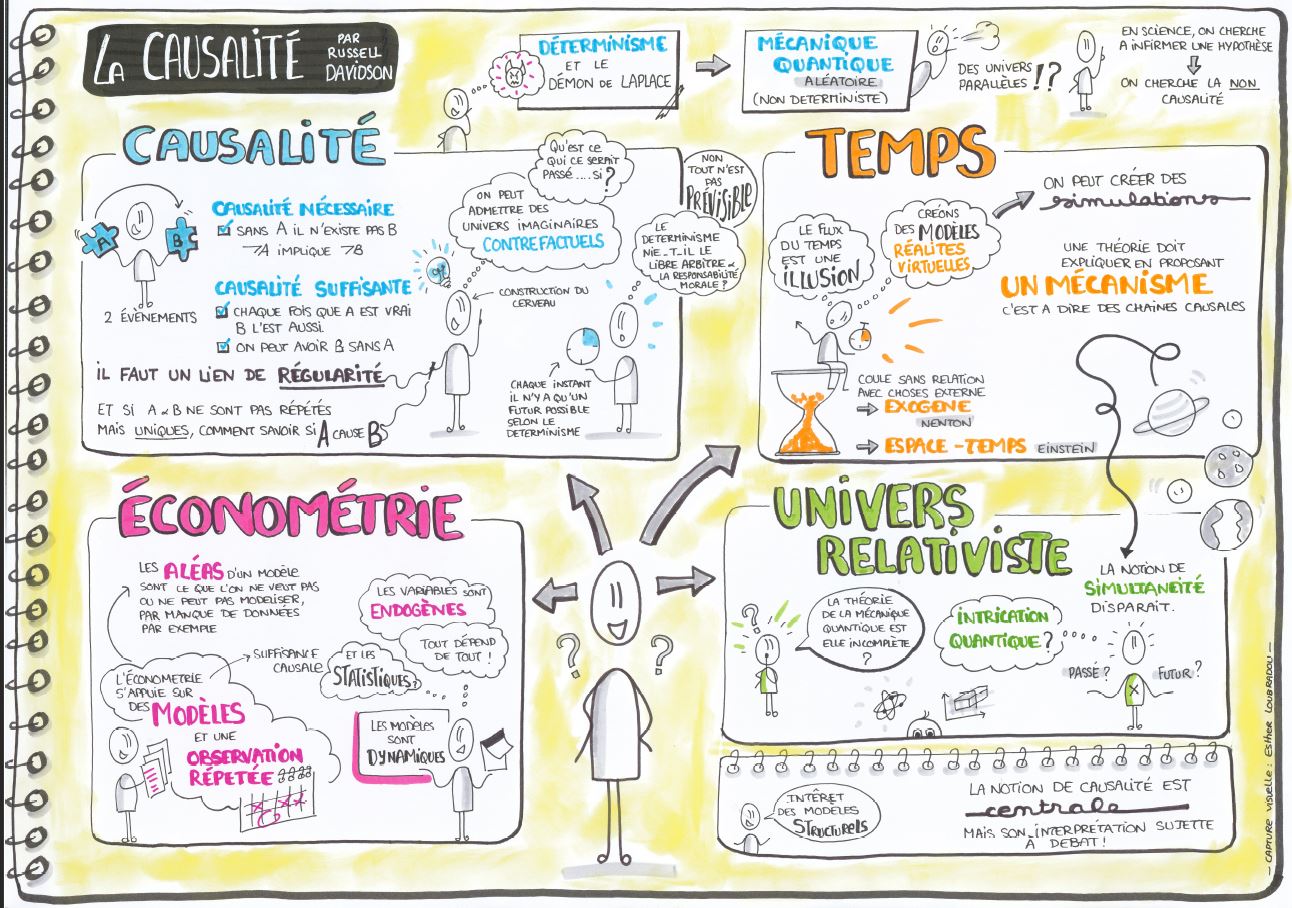 LA CAUSALITÉ
PAR
RUSSELL
DAVIDSON
DÉTERMINISME
ET LE
DÉMON DE LAPLACE
MÉCANIQUE
QUANTIQUE
ALÉATOIRE
(NON DETERMINISTE)
DES UNIVERS
PARALLÈLES !?
EN SCIENCE, ON CHERCHE
A INFIRMER UNE HYPOTHÈSE
ON CHERCHE LA NON
CAUSALITÉ
CAUSALITÉ
A
B
2 ÉVÉNEMENTS
CAUSALITÉ NÉCESSAIRE
SANS A IL N'EXISTE PAS B
¬A IMPLIQUE ¬B
CAUSALITÉ SUFFISANTE
CHAQUE FOIS QUE A EST VRAI
B L'EST AUSSI.
ON PEUT AVOIR B SANS A
IL FAUT UN LIEN DE RÉGULARITÉ
ET SI A & B NE SONT PAS RÉPÉTÉS
MAIS UNIQUES, COMMENT SAVOIR SI A CAUSE B
QU'EST CE
QUI CE SERAIT
PASSÉ .... SI ?
ON PEUT
ADMETTRE DES
UNIVERS IMAGINAIRES
CONTREFACTUELS
CONSTRUCTION DU
CERVEAU
NON
TOUT N'EST
PAS
PRÉVISIBLE
LE
DETERMINISME
NIE_T_IL LE
LIBRE ARBITRE &
LA RESPONSABILITÉ
MORALE ?
CHAQUE INSTANT
IL N'Y A QU'UN
FUTUR POSSIBLE
SELON LE
DETERMINISME
TEMPS
LE FLUX
DU TEMPS
EST UNE
ILLUSION
CRÉONS
DES MODÈLES
RÉALITES
VIRTUELLES
ON PEUT CRÉER DES
simulations
UNE THÉORIE DOIT
EXPLIQUER EN PROPOSANT
UN MÉCANISME
C'EST A DIRE DES CHAINES CAUSALES
COULE SANS RELATION
AVEC CHOSES EXTERNE
EXOGENE
NEWTON
ESPACE-TEMPS EINSTEIN
ÉCONOMÉTRIE
LES ALÉAS D'UN MODÈLE
SONT CE QUE L'ON NE VEUT PAS
OU NE PEUT PAS MODELISER,
PAR MANQUE DE DONNÉES
PAR EXEMPLE
L'ÉCONOMETRIE
S'APPUIE SUR
DES MODÈLES
ET UNE
OBSERVATION
RÉPETÉE
SUFFISANCE
CAUSALE
LES VARIABLES SONT
ENDOGÈNES
TOUT DÉPEND
DE TOUT !
ET LES
STATISTIQUES ?
LES MODÈLES
SONT
DYNAMIQUES
? ?
UNIVERS
RELATIVISTE
?
LA THÉORIE
DE LA MÉCANIQUE
QUANTIQUE EST
ELLE INCOMPLÈTE
?
INTRICATION
QUANTIQUE ?
LA NOTION DE
SIMULTANEITÉ
DISPARAIT.
PASSÉ ? FUTUR ?
INTÊRET
DES MODÈLES
STRUCTURELS
LA NOTION DE CAUSALITÉ EST
centrale
MAIS SON INTERPRÉTATION SUJETTE
A DEBAT !
— CAPTURE VISUELLE : ESTHER LOUBRADOU —